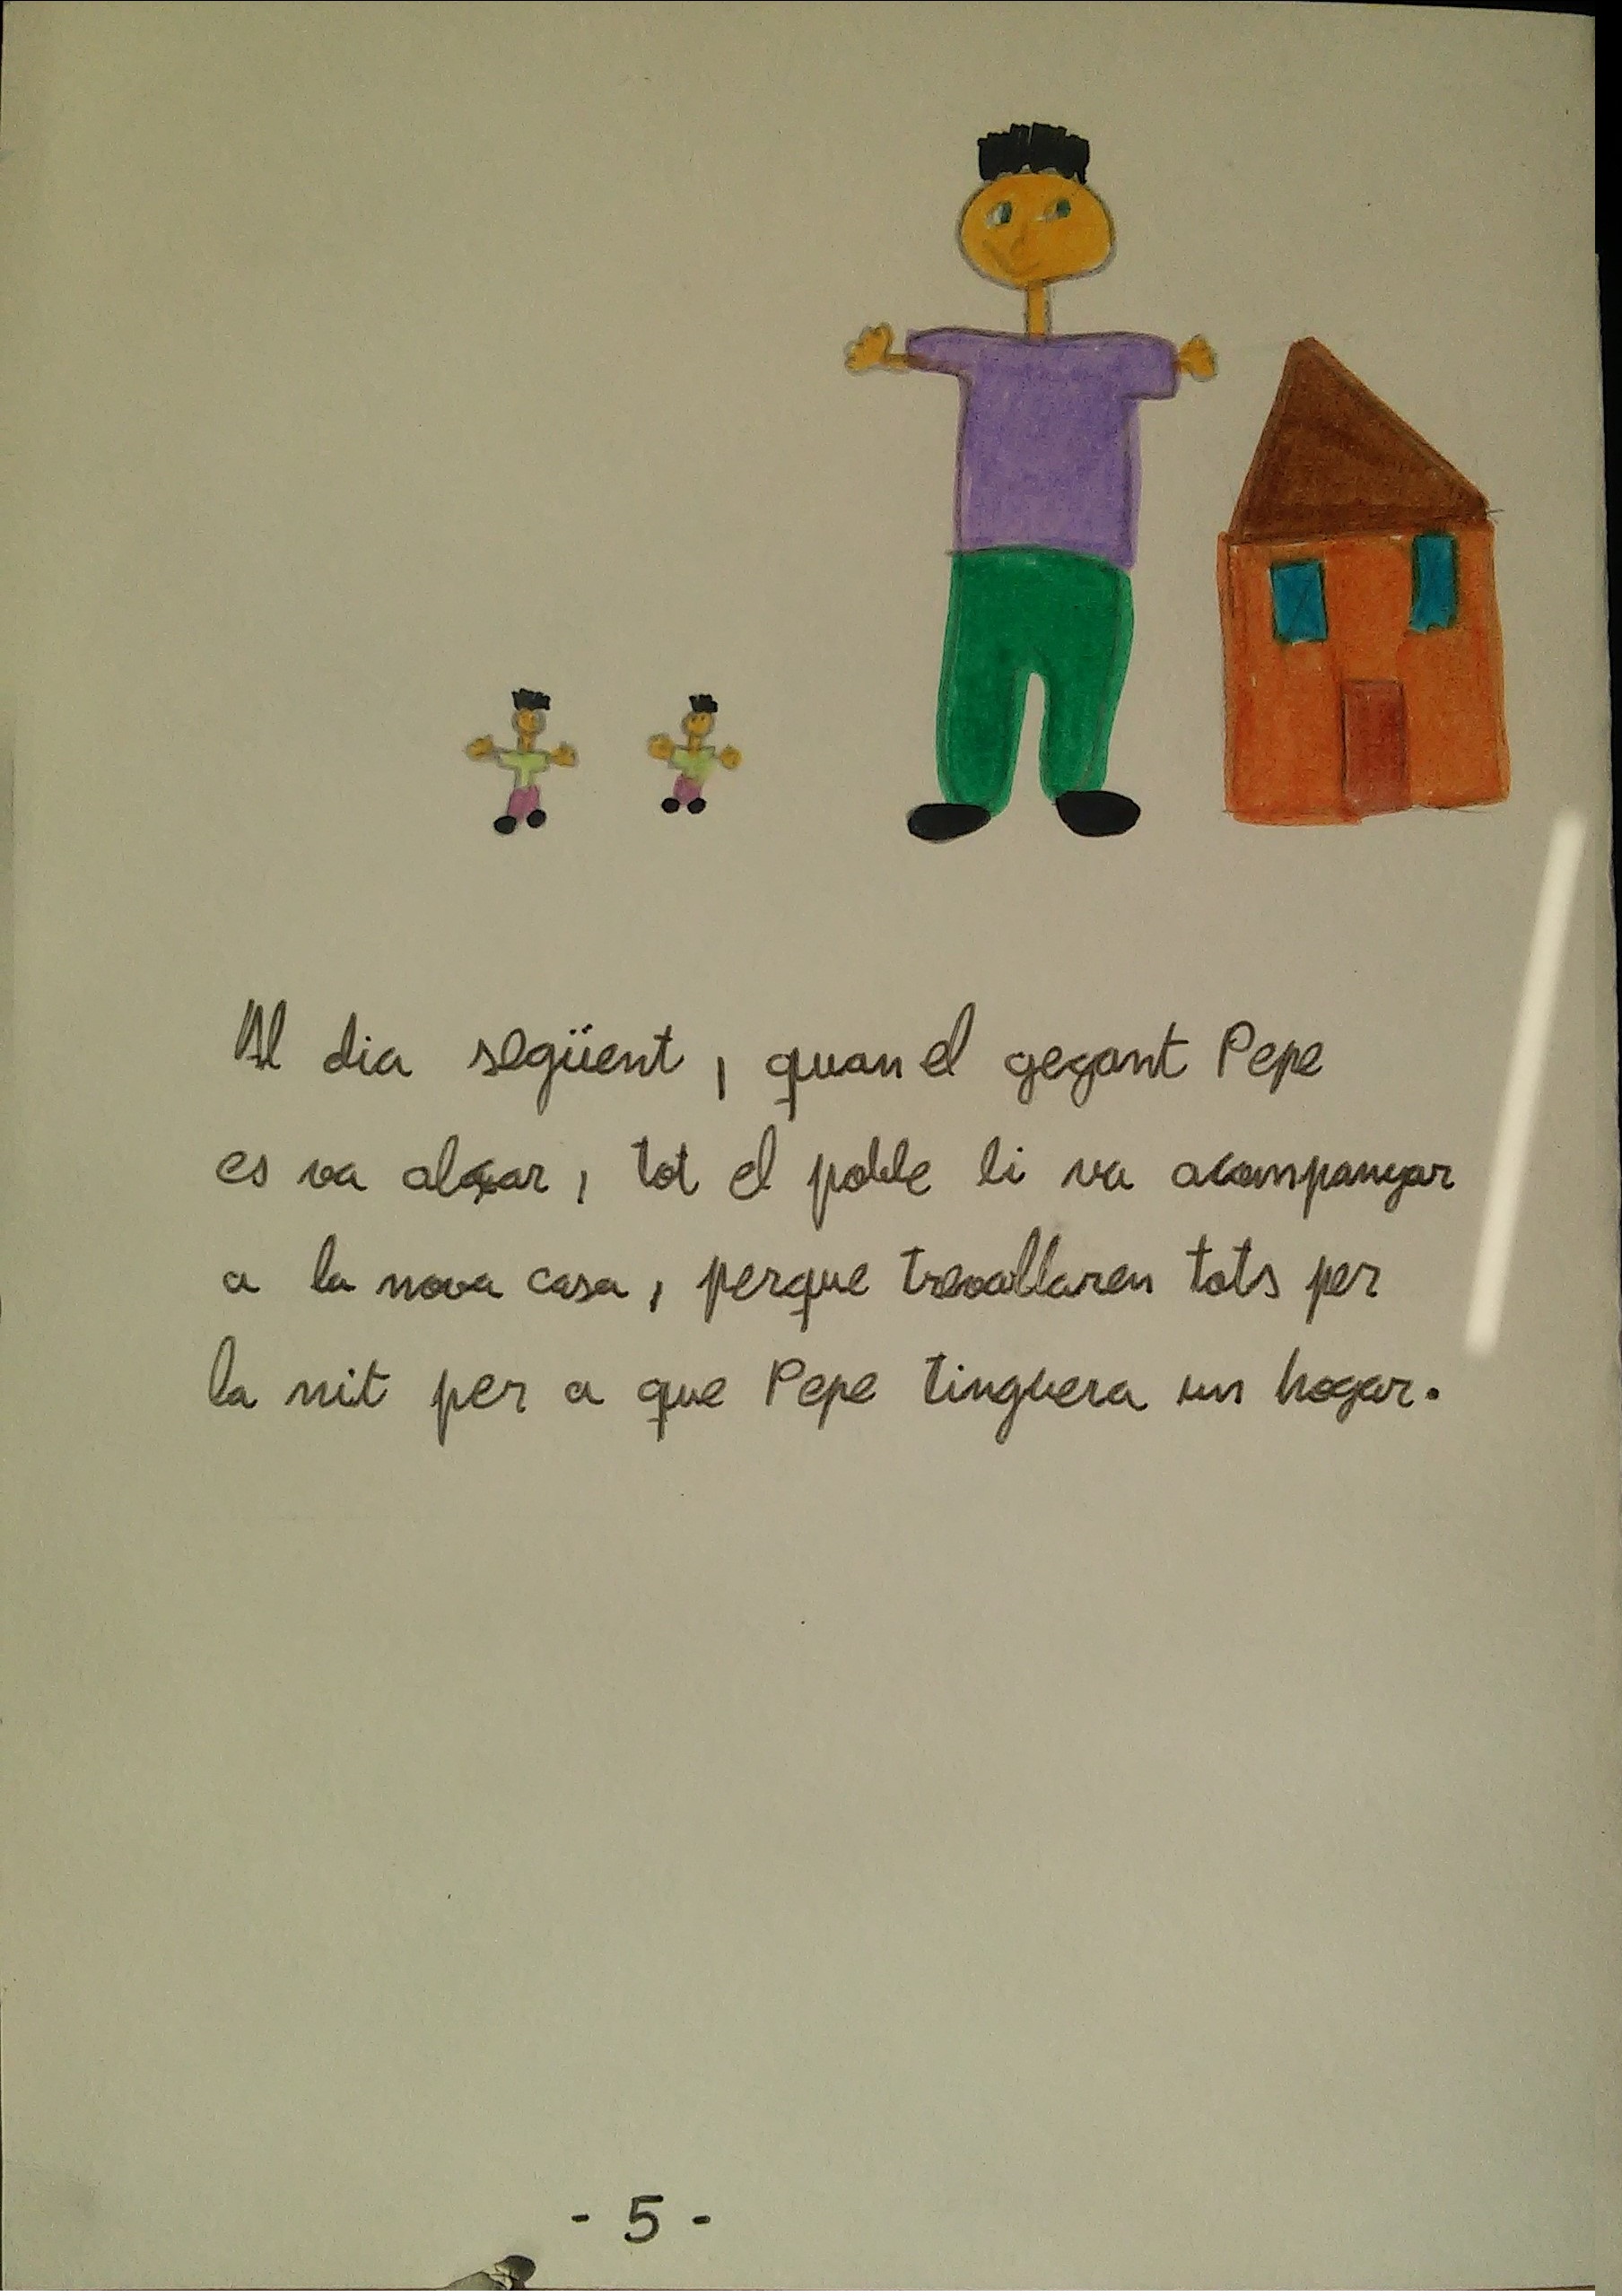 Al dia següent, quan el gegant Pepe
es va alçar, tot el poble li va acompanyar
a la nova casa, perque trevallaren tots per
la nit per a que Pepe tinguera un hogar.
- 5 -